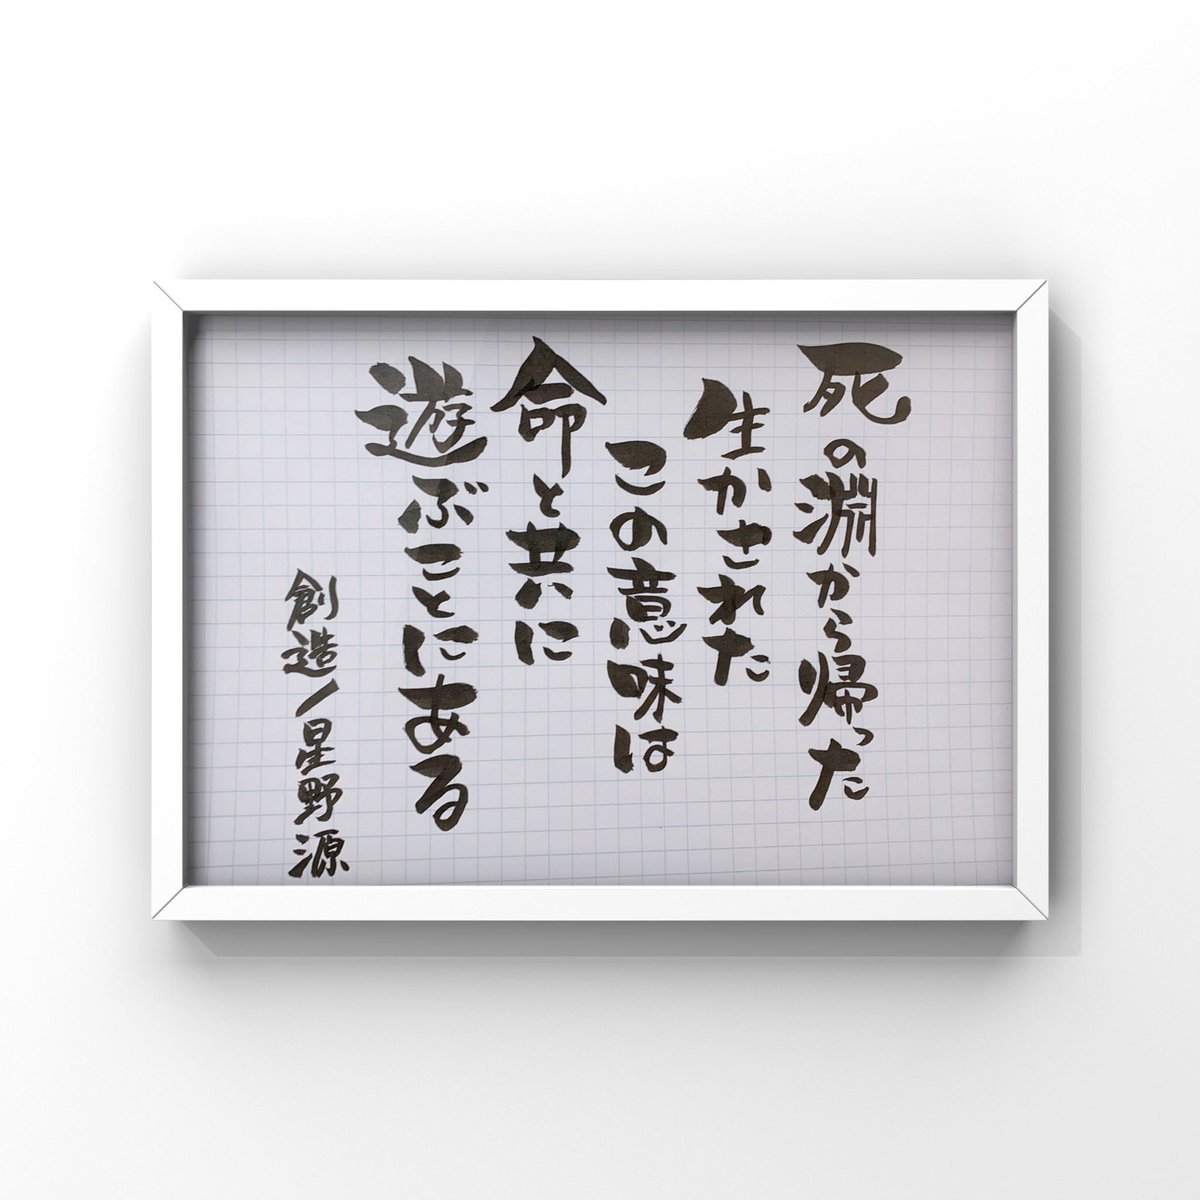 死の淵から帰った
生かされた
この意味は
命と共に
遊ぶことにある
創造/星野源